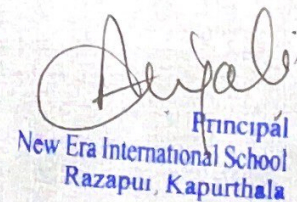 Anjali
Principal
New Era International School
Razapur, Kapurthala